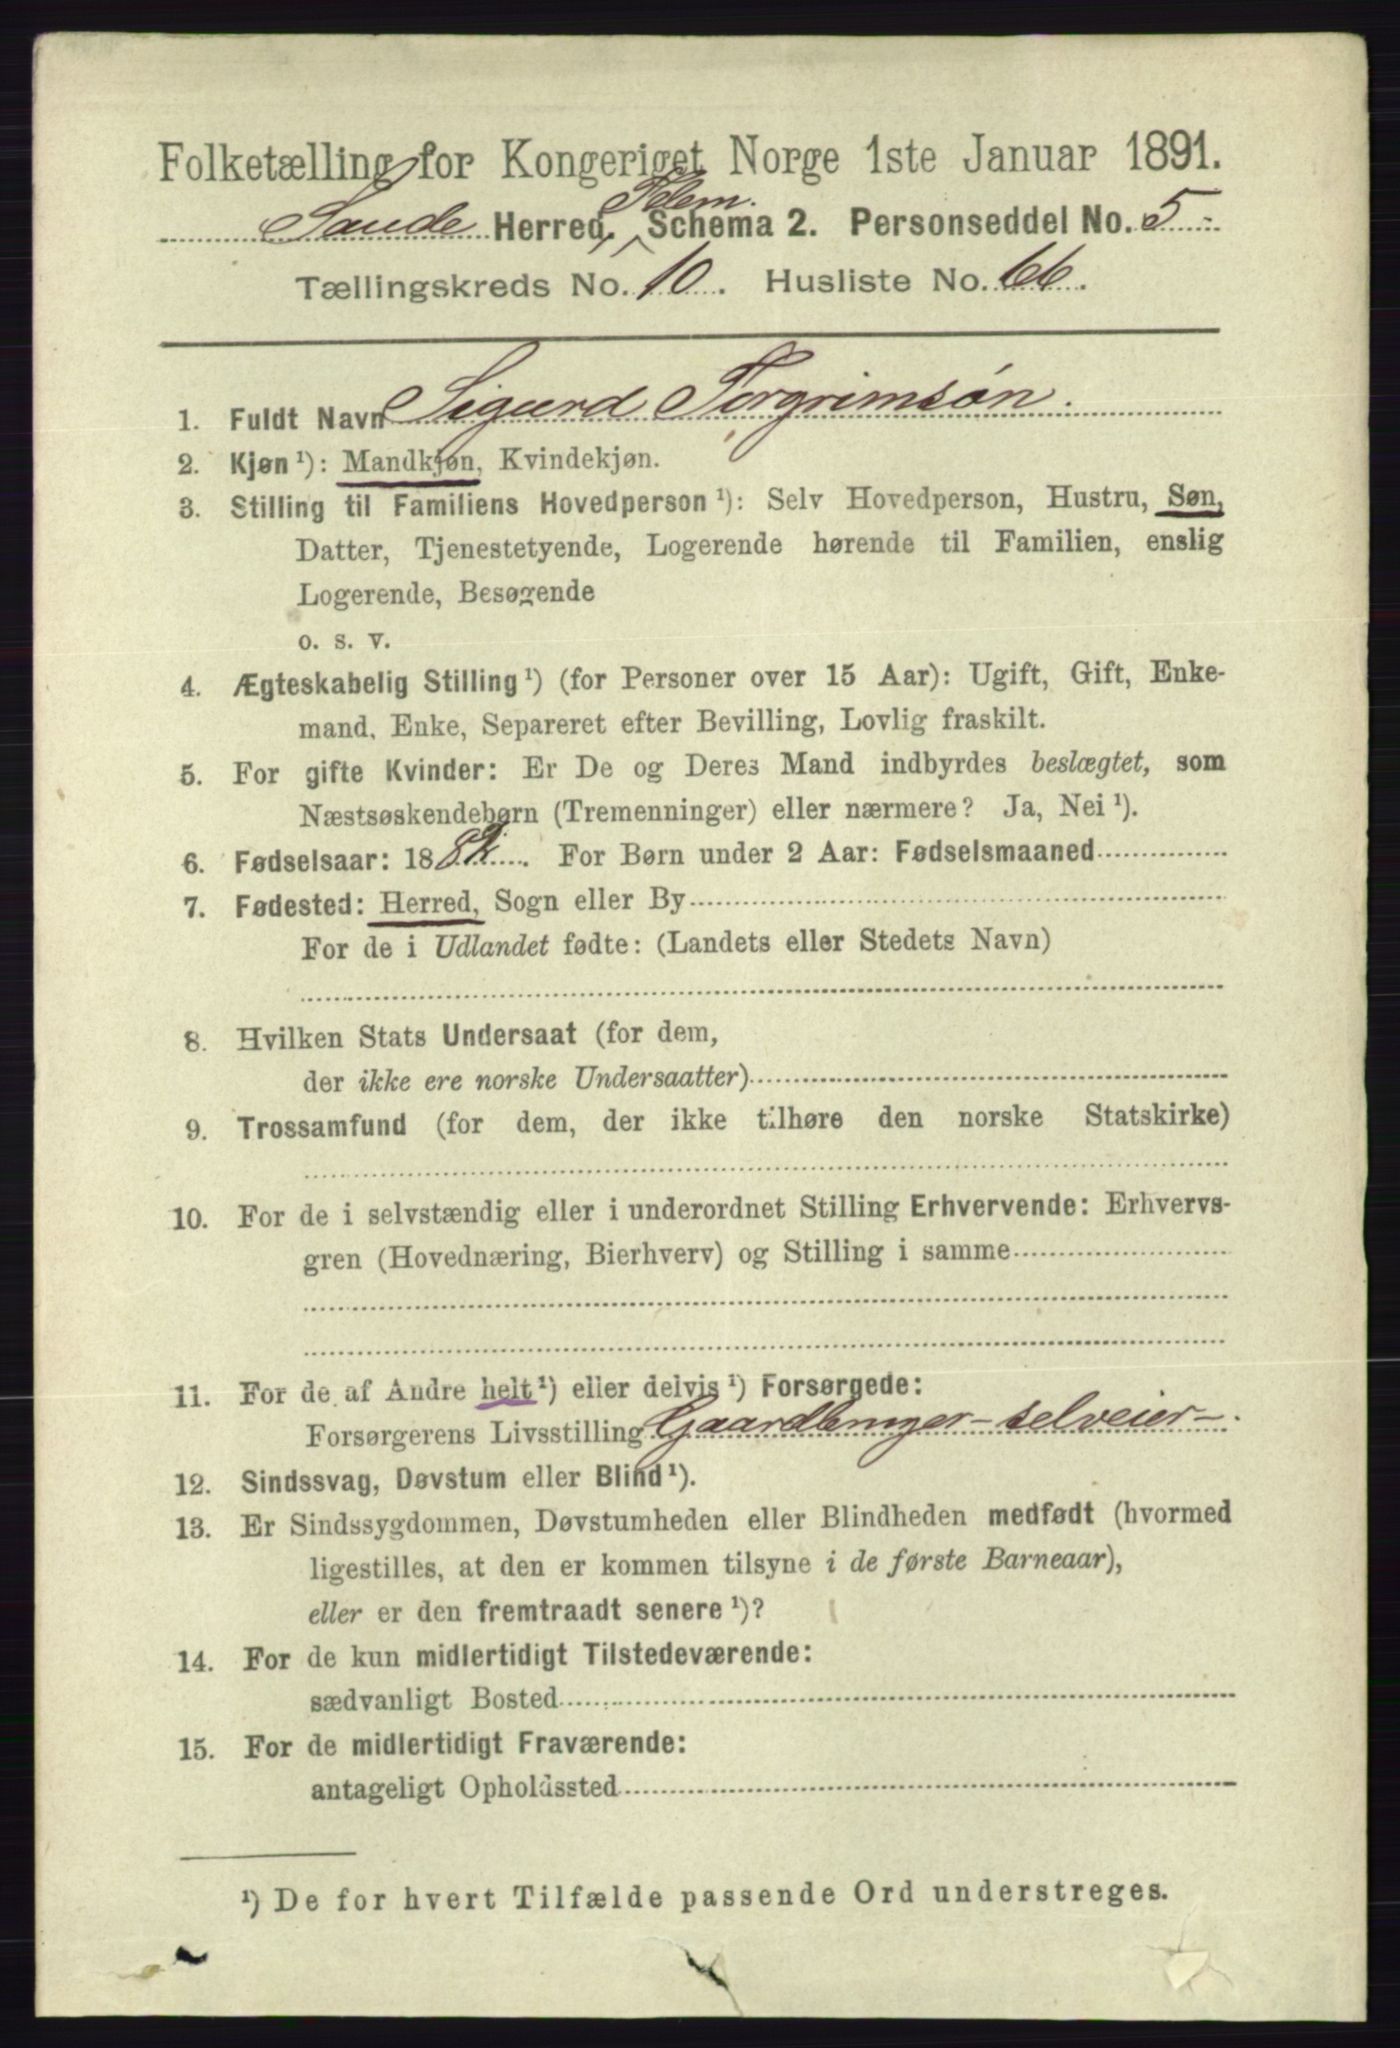 Folketælling for Kongeriget Norge 1ste Januar 1891.
Telem.
Saude Herred, Schema 2. Personseddel No. 5
Tællingskreds No. 10. Husliste No. 66.
1. Fuldt Navn Sigurd Torgrimsøn.
2. Kjøn ¹): Mandkjøn, Kvindekjøn.
3. Stilling til Familiens Hovedperson ¹): Selv Hovedperson, Hustru, Søn,
Datter, Tjenestetyende, Logerende hørende til Familien, enslig
Logerende, Besøgende
o. s. v.
4. Ægteskabelig Stilling ¹) (for Personer over 15 Aar): Ugift, Gift, Enke-
mand, Enke, Separeret efter Bevilling, Lovlig fraskilt.
5. For gifte Kvinder: Er De og Deres Mand indbyrdes beslægtet, som
Næstsøskendebørn (Tremenninger) eller nærmere? Ja, Nei ¹).
6. Fødselsaar: 18 For Børn under 2 Aar: Fødselsmaaned
7. Fødested: Herred, Sogn eller By
For de i Udlandet fødte: (Landets eller Stedets Navn)
8. Hvilken Stats Undersaat (for dem,
der ikke ere norske Undersaatter)
9. Trossamfund (for dem, der ikke tilhøre den norske Statskirke)
10. For de i selvstændig eller i underordnet Stilling Erhvervende: Erhvervs-
gren (Hovednæring, Bierhverv) og Stilling i samme
11. For de af Andre helt ¹) eller delvis ¹) Forsørgede:
Forsørgerens Livsstilling Gaardbruger - selveier -.
12. Sindssvag, Døvstum eller Blind ¹).
13. Er Sindssygdommen, Døvstumheden eller Blindheden medfødt (hvormed
ligestilles, at den er kommen tilsyne i de første Barneaar),
eller er den fremtraadt senere ¹)?
14. For de kun midlertidigt Tilstedeværende:
sædvanligt Bosted
15. For de midlertidigt Fraværende:
antageligt Opholdssted
¹) De for hvert Tilfælde passende Ord understreges.